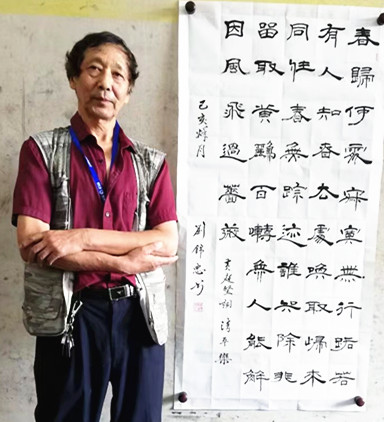 春歸何處寂寞無行路若
有人知春去處喚取歸來
同住春無踪迹誰知除非
留取黄鸝百囀無人能解
因風飛過薔薇
黄庭堅詞 清平樂
己亥 月 劉錦忠书